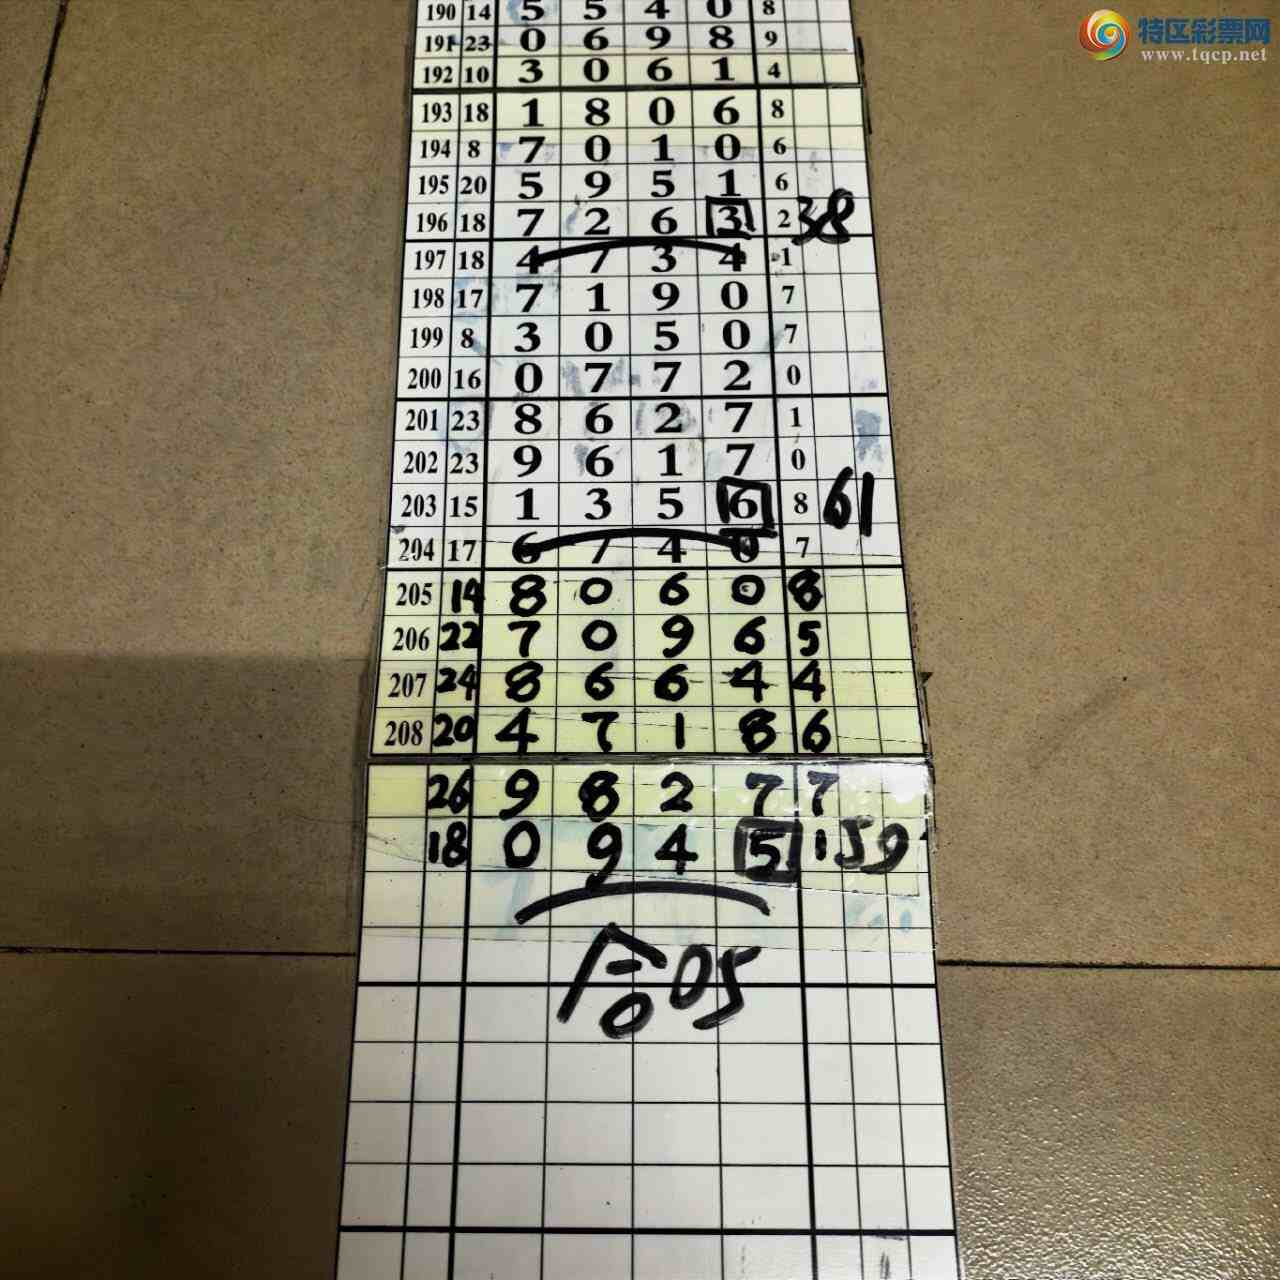 特区彩票网
www.tqcp.net
190 14 5 5 4 0 8
191 23 0 6 9 8 9
192 10 3 0 6 1 4
193 18 1 8 0 6 8
194 8 7 0 1 0 6
195 20 5 9 5 1 6
196 18 7 2 6 3 2 38
197 18 4 7 3 4 1
198 17 7 1 9 0 7
199 8 3 0 5 0 7
200 16 0 7 7 2 0
201 23 8 6 2 7 1
202 23 9 6 1 7 0
203 15 1 3 5 6 8 61
204 17 6 7 4 0 7
205 14 8 0 6 0 8
206 22 7 0 9 6 5
207 24 8 6 6 4 4
208 20 4 7 1 8 6
26 9 8 2 7 7
18 0 9 4 5 1 59
合05